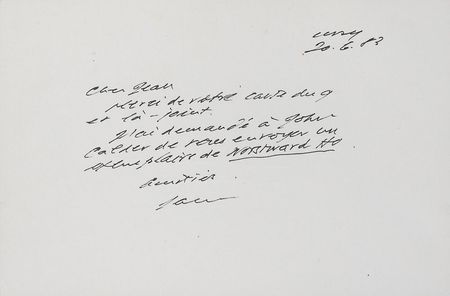 Ussy
20.6.83
Cher Jean
Merci de votre carte du 9
et là-joint.
J'ai demandé à John
Calder de vous envoyer un
exemplaire de Worstward Ho.
Amitiés
Sam